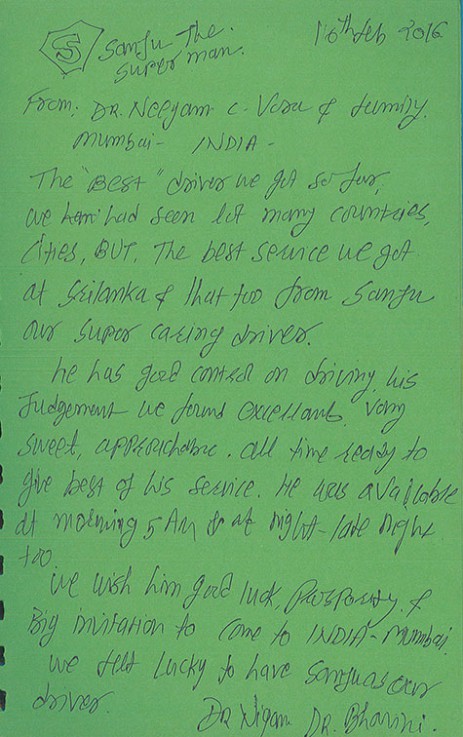 S Sanju The. 16th Feb 2016
Super man.
From: DR. Neegam C. Vora & family.
Mumbai - INDIA -
The "BEST" driver we got so far,
we had seen lot many countries,
Cities, BUT, The best service we got
at Srilanka & that too from Sanju
our super caring driver.
He has good control on driving, his
Judgement we found excellant. Very
sweet, approchable. all time ready to
give best of his service. He was available
at morning 5 AM & at night-late night
too.
we wish him good luck, Prosperity &
Big invitation to come to INDIA - Mumbai.
we felt lucky to have Sanju as our
driver.
DR Nigam DR. Bhavini.